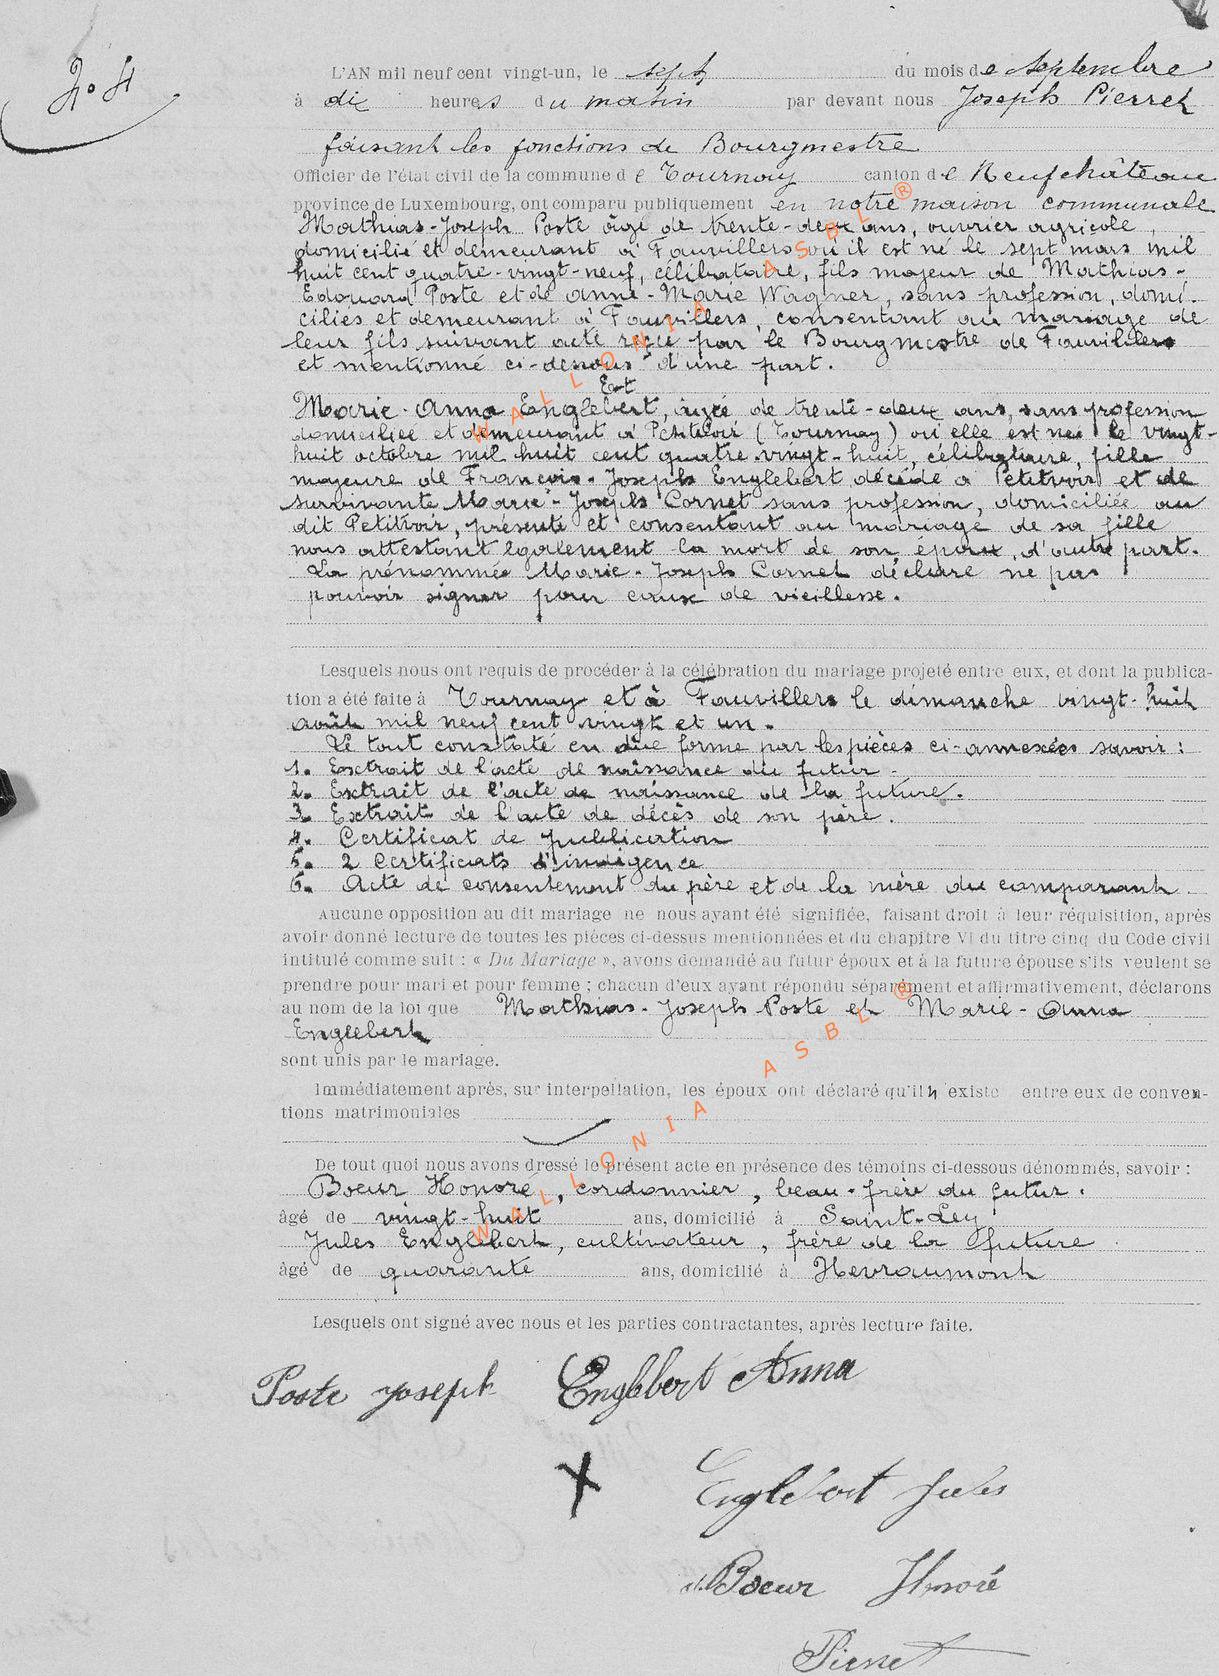 N° 4
L'AN mil neuf cent vingt-un, le sept du mois de septembre
à dix heures du matin par devant nous Joseph Pierret
faisant les fonctions de Bourgmestre
Officier de l'état civil de la commune de Tournay canton de Neufchâteau
province de Luxembourg, ont comparu publiquement en notre maison communale
Mathias-Joseph Poste âgé de trente-deux ans, ouvrier agricole,
domicilié et demeurant à Fauvillers où il est né le sept mars mil
huit cent quatre-vingt-neuf, célibataire, fils majeur de Mathias-
Edouard Poste et de Anne-Marie Wagner, sans profession, domi-
ciliés et demeurant à Fauvillers, consentant au mariage de
leur fils suivant acte reçu par le Bourgmestre de Fauvillers
et mentionné ci-dessous d'une part.
Et
Marie-Anna Englebert, âgée de trente-deux ans, sans profession
domiciliée et demeurant à Petitvoir (Tournay) où elle est née le vingt-
huit octobre mil huit cent quatre-vingt-huit, célibataire, fille
majeure de François-Joseph Englebert décédé à Petitvoir et de
survivante Marie-Joseph Cornet sans profession, domiciliée au
dit Petitvoir, présente et consentant au mariage de sa fille
nous attestant également la mort de son époux, d'autre part.
La prénommée Marie-Joseph Cornet déclare ne pas
pouvoir signer pour cause de vieillesse.
Lesquels nous ont requis de procéder à la célébration du mariage projeté entre eux, et dont la publica-
tion a été faite à Tournay et à Fauvillers le dimanche vingt-huit
août mil neuf cent vingt et un.
Le tout constaté en due forme par les pièces ci-annexées savoir :
1. Extrait de l'acte de naissance du futur.
2. Extrait de l'acte de naissance de la future.
3. Extrait de l'acte de décès de son père.
4. Certificat de publication
5. 2 Certificats d'indigence
6. Acte de consentement du père et de la mère du comparant
Aucune opposition au dit mariage ne nous ayant été signifiée, faisant droit à leur réquisition, après
avoir donné lecture de toutes les pièces ci-dessus mentionnées et du chapitre VI du titre cinq du Code civil
intitulé comme suit : « Du Mariage », avons demandé au futur époux et à la future épouse s'ils veulent se
prendre pour mari et pour femme ; chacun d'eux ayant répondu séparément et affirmativement, déclarons
au nom de la loi que Mathias-Joseph Poste et Marie-Anna
Englebert
sont unis par le mariage.
Immédiatement après, sur interpellation, les époux ont déclaré qu'il n'existe entre eux de conven-
tions matrimoniales
De tout quoi nous avons dressé le présent acte en présence des témoins ci-dessous dénommés, savoir :
Boeur Honoré, cordonnier, beau-frère du futur.
âgé de vingt-huit ans, domicilié à Saint-Ley
Jules Englebert, cultivateur, frère de la future
âgé de quarante ans, domicilié à Hevraumont
Lesquels ont signé avec nous et les parties contractantes, après lecture faite.
Poste Joseph Englebert Anna
X Englebert Jules
Boeur Honoré
Pierret
WALLONIA ASBL ®
WALLONIA ASBL ®